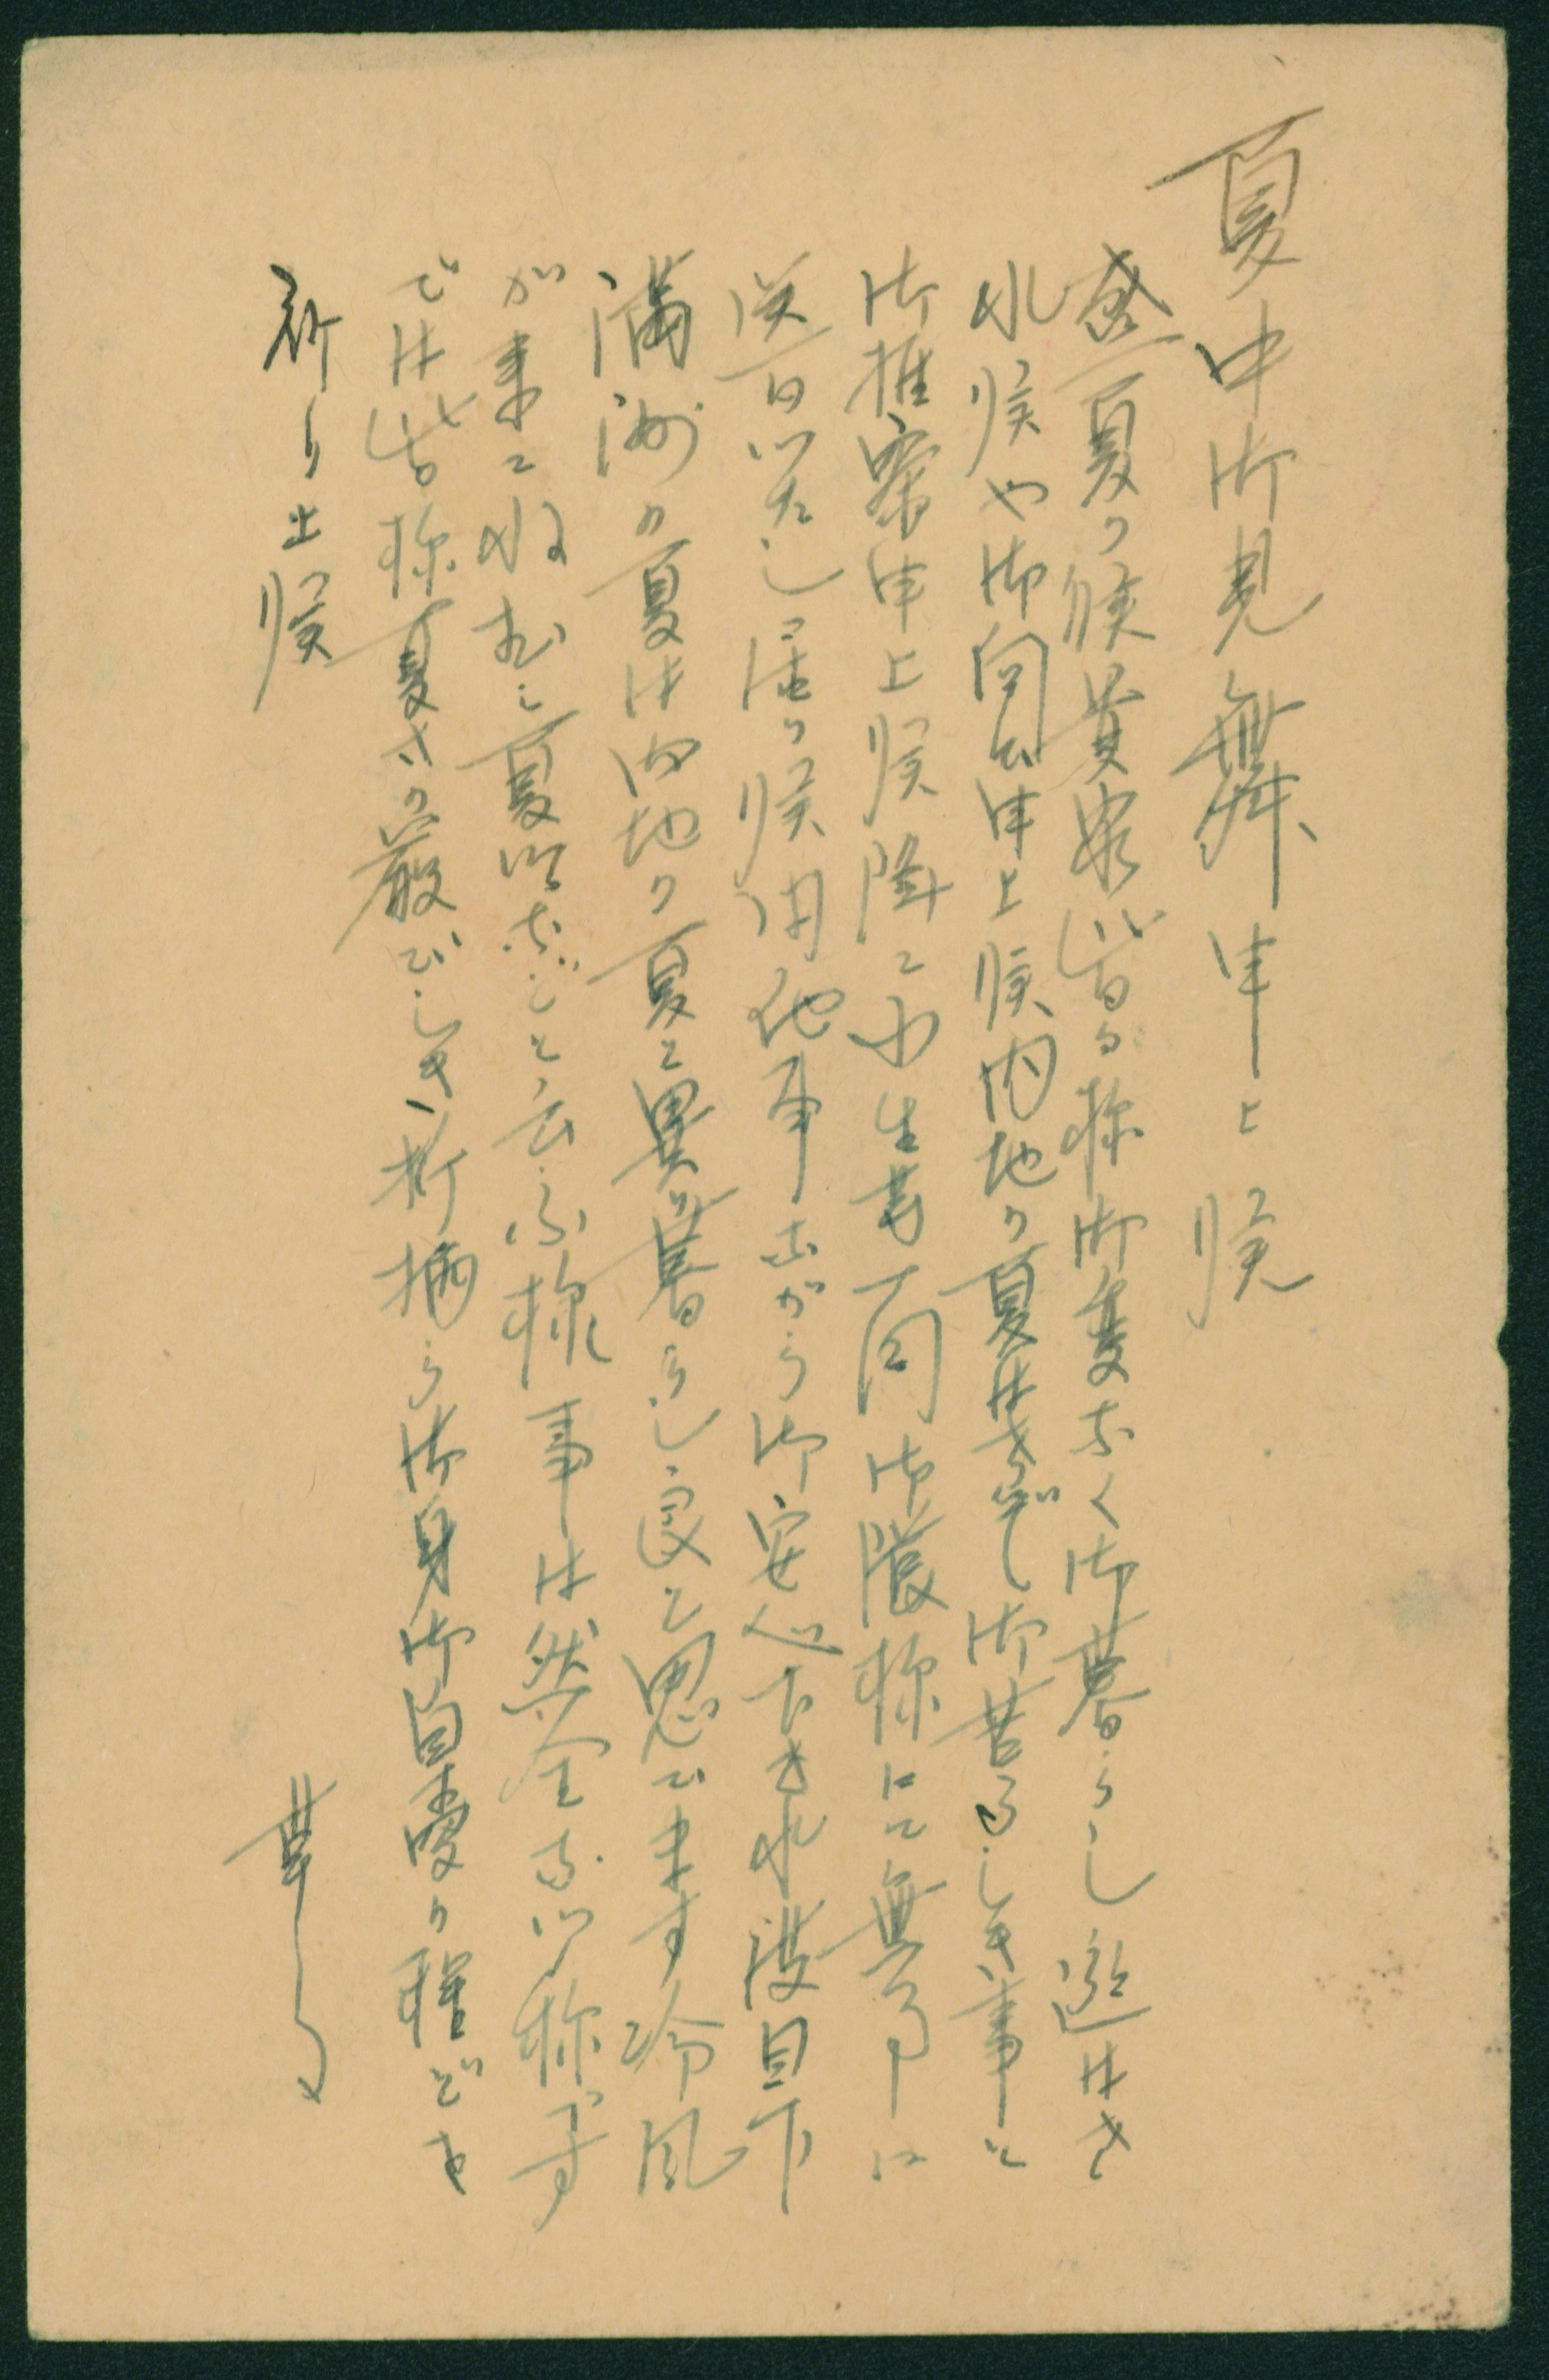 夏中御見舞申上候
盛夏の候貴家皆々様御変なく御暮らし遊はさ
れ候や御伺ひ申上候内地の夏はさぞし御苦るしき事と
御推察申上候降て小生等一同御蔭様にて無事に
送日いたし居り候間他事乍がら御安心下され度目下
満洲の夏は内地の夏と異り暮らし良いと思ひます冷風
が来てねむし夏ばなどと云ふ様事は然全ない様です
では皆様夏さの厳びしき折柄ら御身御自愛の程どを
祈り上候
草々